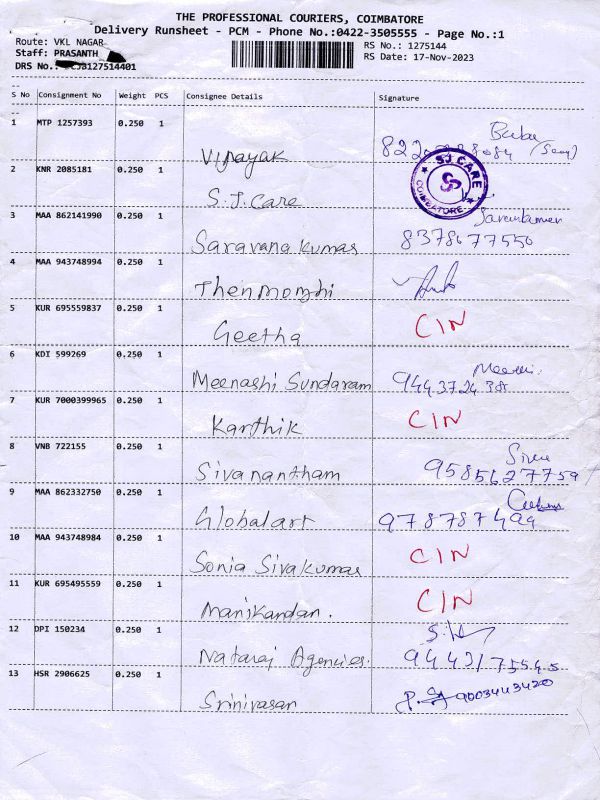 THE PROFESSIONAL COURIERS, COIMBATORE
Delivery Runsheet - PCM - Phone No.:0422-3505555 - Page No.:1
Route: VKL NAGAR RS No.: 1275144
Staff: PRASANTH RS Date: 17-Nov-2023
DRS No.: 127514401
S No Consignment No Weight PCS Consignee Details Signature
1 MTP 1257393 0.250 1 Vinayak
2 KNR 2085181 0.250 1 S.J.Care SJ CARE COIMBATORE
3 MAA 862141990 0.250 1 Saravana kumar 8378677550
4 MAA 943748994 0.250 1 Thenmozhi
5 KUR 695559837 0.250 1 Geetha CIN
6 KDI 599269 0.250 1 Meenashi Sundaram
7 KUR 7000399965 0.250 1 Karthik CIN
8 VNB 722155 0.250 1 Sivanantham 9585627759
9 MAA 862332750 0.250 1 Globalart 9787874
10 MAA 943748984 0.250 1 Sonia Sivakumar CIN
11 KUR 695495559 0.250 1 Manikandan. CIN
12 DPI 150234 0.250 1 Nataraj Agencies.
13 HSR 2906625 0.250 1 Srinivasan 9003443420